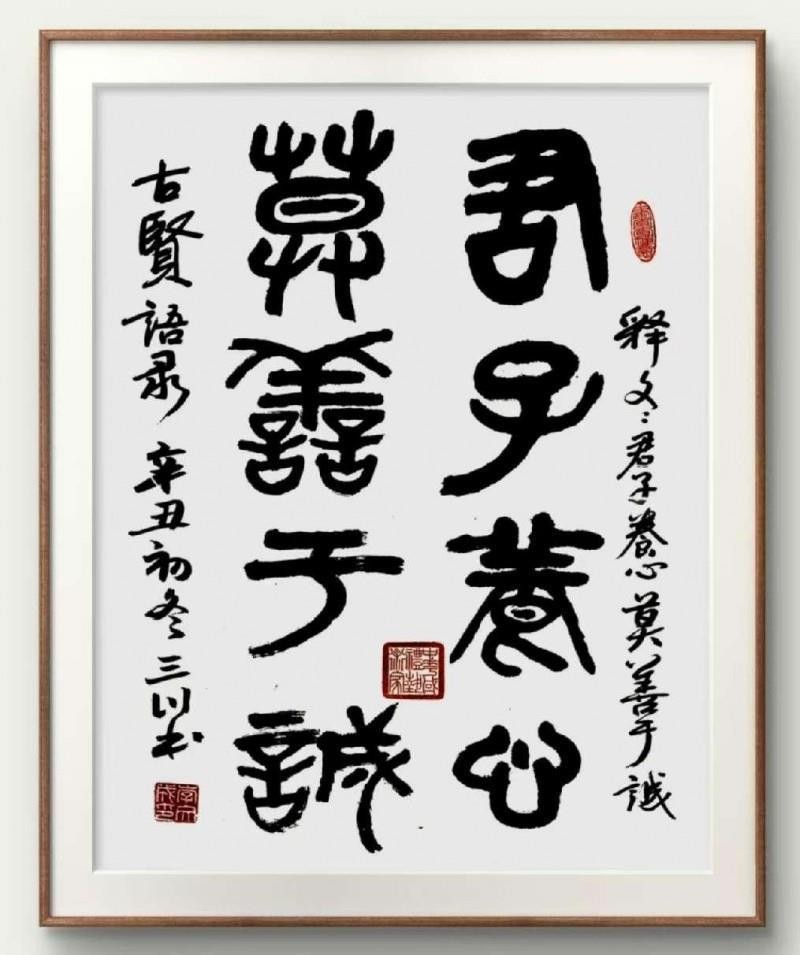 釋文：君子養心莫善于誠
君子養心
莫善于誠
古賢語录 辛丑初冬 三川书